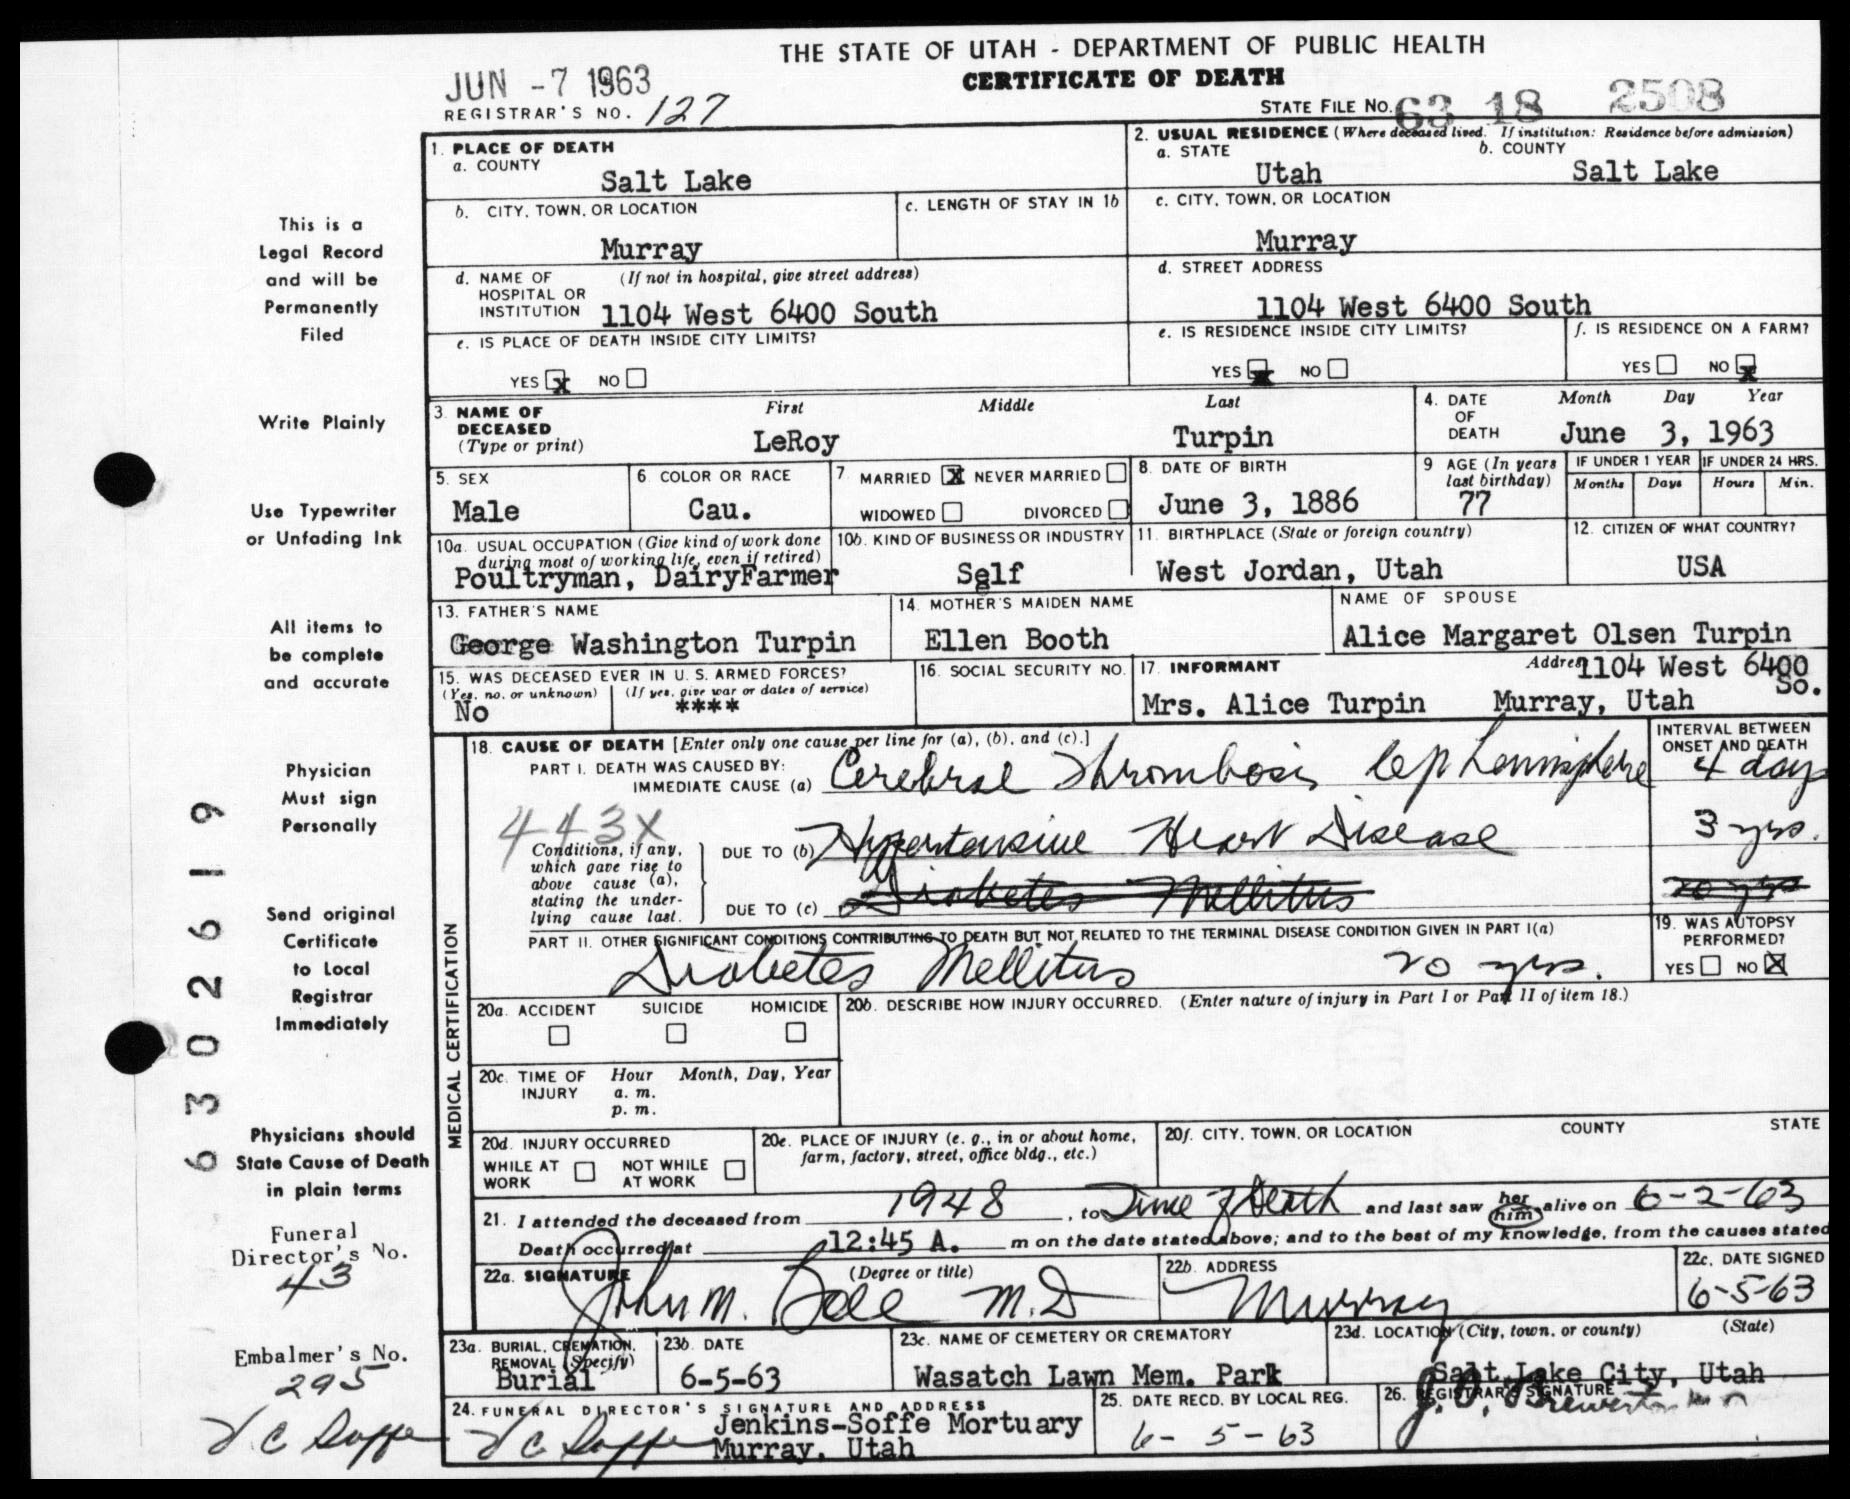 THE STATE OF UTAH - DEPARTMENT OF PUBLIC HEALTH
CERTIFICATE OF DEATH
JUN -7 1963
REGISTRAR'S NO. 127
STATE FILE NO. 63 18 2508
1. PLACE OF DEATH
a. COUNTY
Salt Lake
2. USUAL RESIDENCE (Where deceased lived. If institution: Residence before admission)
a. STATE b. COUNTY
Utah Salt Lake
b. CITY, TOWN, OR LOCATION
Murray
c. LENGTH OF STAY IN 1b
c. CITY, TOWN, OR LOCATION
Murray
d. NAME OF (If not in hospital, give street address)
HOSPITAL OR
INSTITUTION 1104 West 6400 South
d. STREET ADDRESS
1104 West 6400 South
e. IS PLACE OF DEATH INSIDE CITY LIMITS?
YES x NO
e. IS RESIDENCE INSIDE CITY LIMITS?
YES x NO
f. IS RESIDENCE ON A FARM?
YES NO x
3. NAME OF DECEASED (Type or print)
First Middle Last
LeRoy Turpin
4. DATE OF DEATH
Month Day Year
June 3, 1963
5. SEX
Male
6. COLOR OR RACE
Cau.
7. MARRIED X NEVER MARRIED
WIDOWED DIVORCED
8. DATE OF BIRTH
June 3, 1886
9 AGE (In years last birthday)
77
IF UNDER 1 YEAR
Months Days
IF UNDER 24 HRS.
Hours Min.
10a. USUAL OCCUPATION (Give kind of work done
during most of working life, even if retired)
Poultryman, DairyFarmer
10b. KIND OF BUSINESS OR INDUSTRY
Self
11. BIRTHPLACE (State or foreign country)
West Jordan, Utah
12. CITIZEN OF WHAT COUNTRY?
USA
13. FATHER'S NAME
George Washington Turpin
14. MOTHER'S MAIDEN NAME
Ellen Booth
NAME OF SPOUSE
Alice Margaret Olsen Turpin
15. WAS DECEASED EVER IN U. S. ARMED FORCES?
(Yes, no, or unknown) (If yes, give war or dates of service)
No ****
16. SOCIAL SECURITY NO.
17. INFORMANT Address 1104 West 6400 So.
Mrs. Alice Turpin Murray, Utah
MEDICAL CERTIFICATION
18. CAUSE OF DEATH [Enter only one cause per line for (a), (b), and (c).]
PART I. DEATH WAS CAUSED BY:
IMMEDIATE CAUSE (a) Cerebral Thrombosis left hemisphere
INTERVAL BETWEEN
ONSET AND DEATH
4 days
443X
Conditions, if any,
which gave rise to
above cause (a),
stating the under-
lying cause last.
DUE TO (b) Hypertensive Heart Disease 3 yrs.
DUE TO (c) Diabetes Mellitus 20 yrs
PART II. OTHER SIGNIFICANT CONDITIONS CONTRIBUTING TO DEATH BUT NOT RELATED TO THE TERMINAL DISEASE CONDITION GIVEN IN PART I(a)
Diabetes Mellitus 20 yrs.
19. WAS AUTOPSY PERFORMED?
YES NO X
20a. ACCIDENT SUICIDE HOMICIDE
20b. DESCRIBE HOW INJURY OCCURRED. (Enter nature of injury in Part I or Part II of item 18.)
20c. TIME OF INJURY
Hour Month, Day, Year
a. m.
p. m.
20d. INJURY OCCURRED
WHILE AT WORK NOT WHILE AT WORK
20e. PLACE OF INJURY (e. g., in or about home,
farm, factory, street, office bldg., etc.)
20f. CITY, TOWN, OR LOCATION COUNTY STATE
21. I attended the deceased from 1948, to Time of Death and last saw her him alive on 6-2-63
Death occurred at 12:45 A. m on the date stated above; and to the best of my knowledge, from the causes stated
22a. SIGNATURE (Degree or title)
John M. M.D
22b. ADDRESS
Murray
22c. DATE SIGNED
6-5-63
23a. BURIAL, CREMATION,
REMOVAL (Specify)
Burial
23b. DATE
6-5-63
23c. NAME OF CEMETERY OR CREMATORY
Wasatch Lawn Mem. Park
23d. LOCATION (City, town, or county) (State)
Salt Lake City, Utah
24. FUNERAL DIRECTOR'S SIGNATURE AND ADDRESS
Jenkins-Soffe Mortuary
Murray, Utah
25. DATE RECD. BY LOCAL REG.
6-5-63
26. REGISTRAR'S SIGNATURE
J. D. Brewerton
This is a
Legal Record
and will be
Permanently
Filed
Write Plainly
Use Typewriter
or Unfading Ink
All items to
be complete
and accurate
Physician
Must sign
Personally
Send original
Certificate
to Local
Registrar
Immediately
Physicians should
State Cause of Death
in plain terms
Funeral
Director's No.
43
Embalmer's No.
295
630 2619